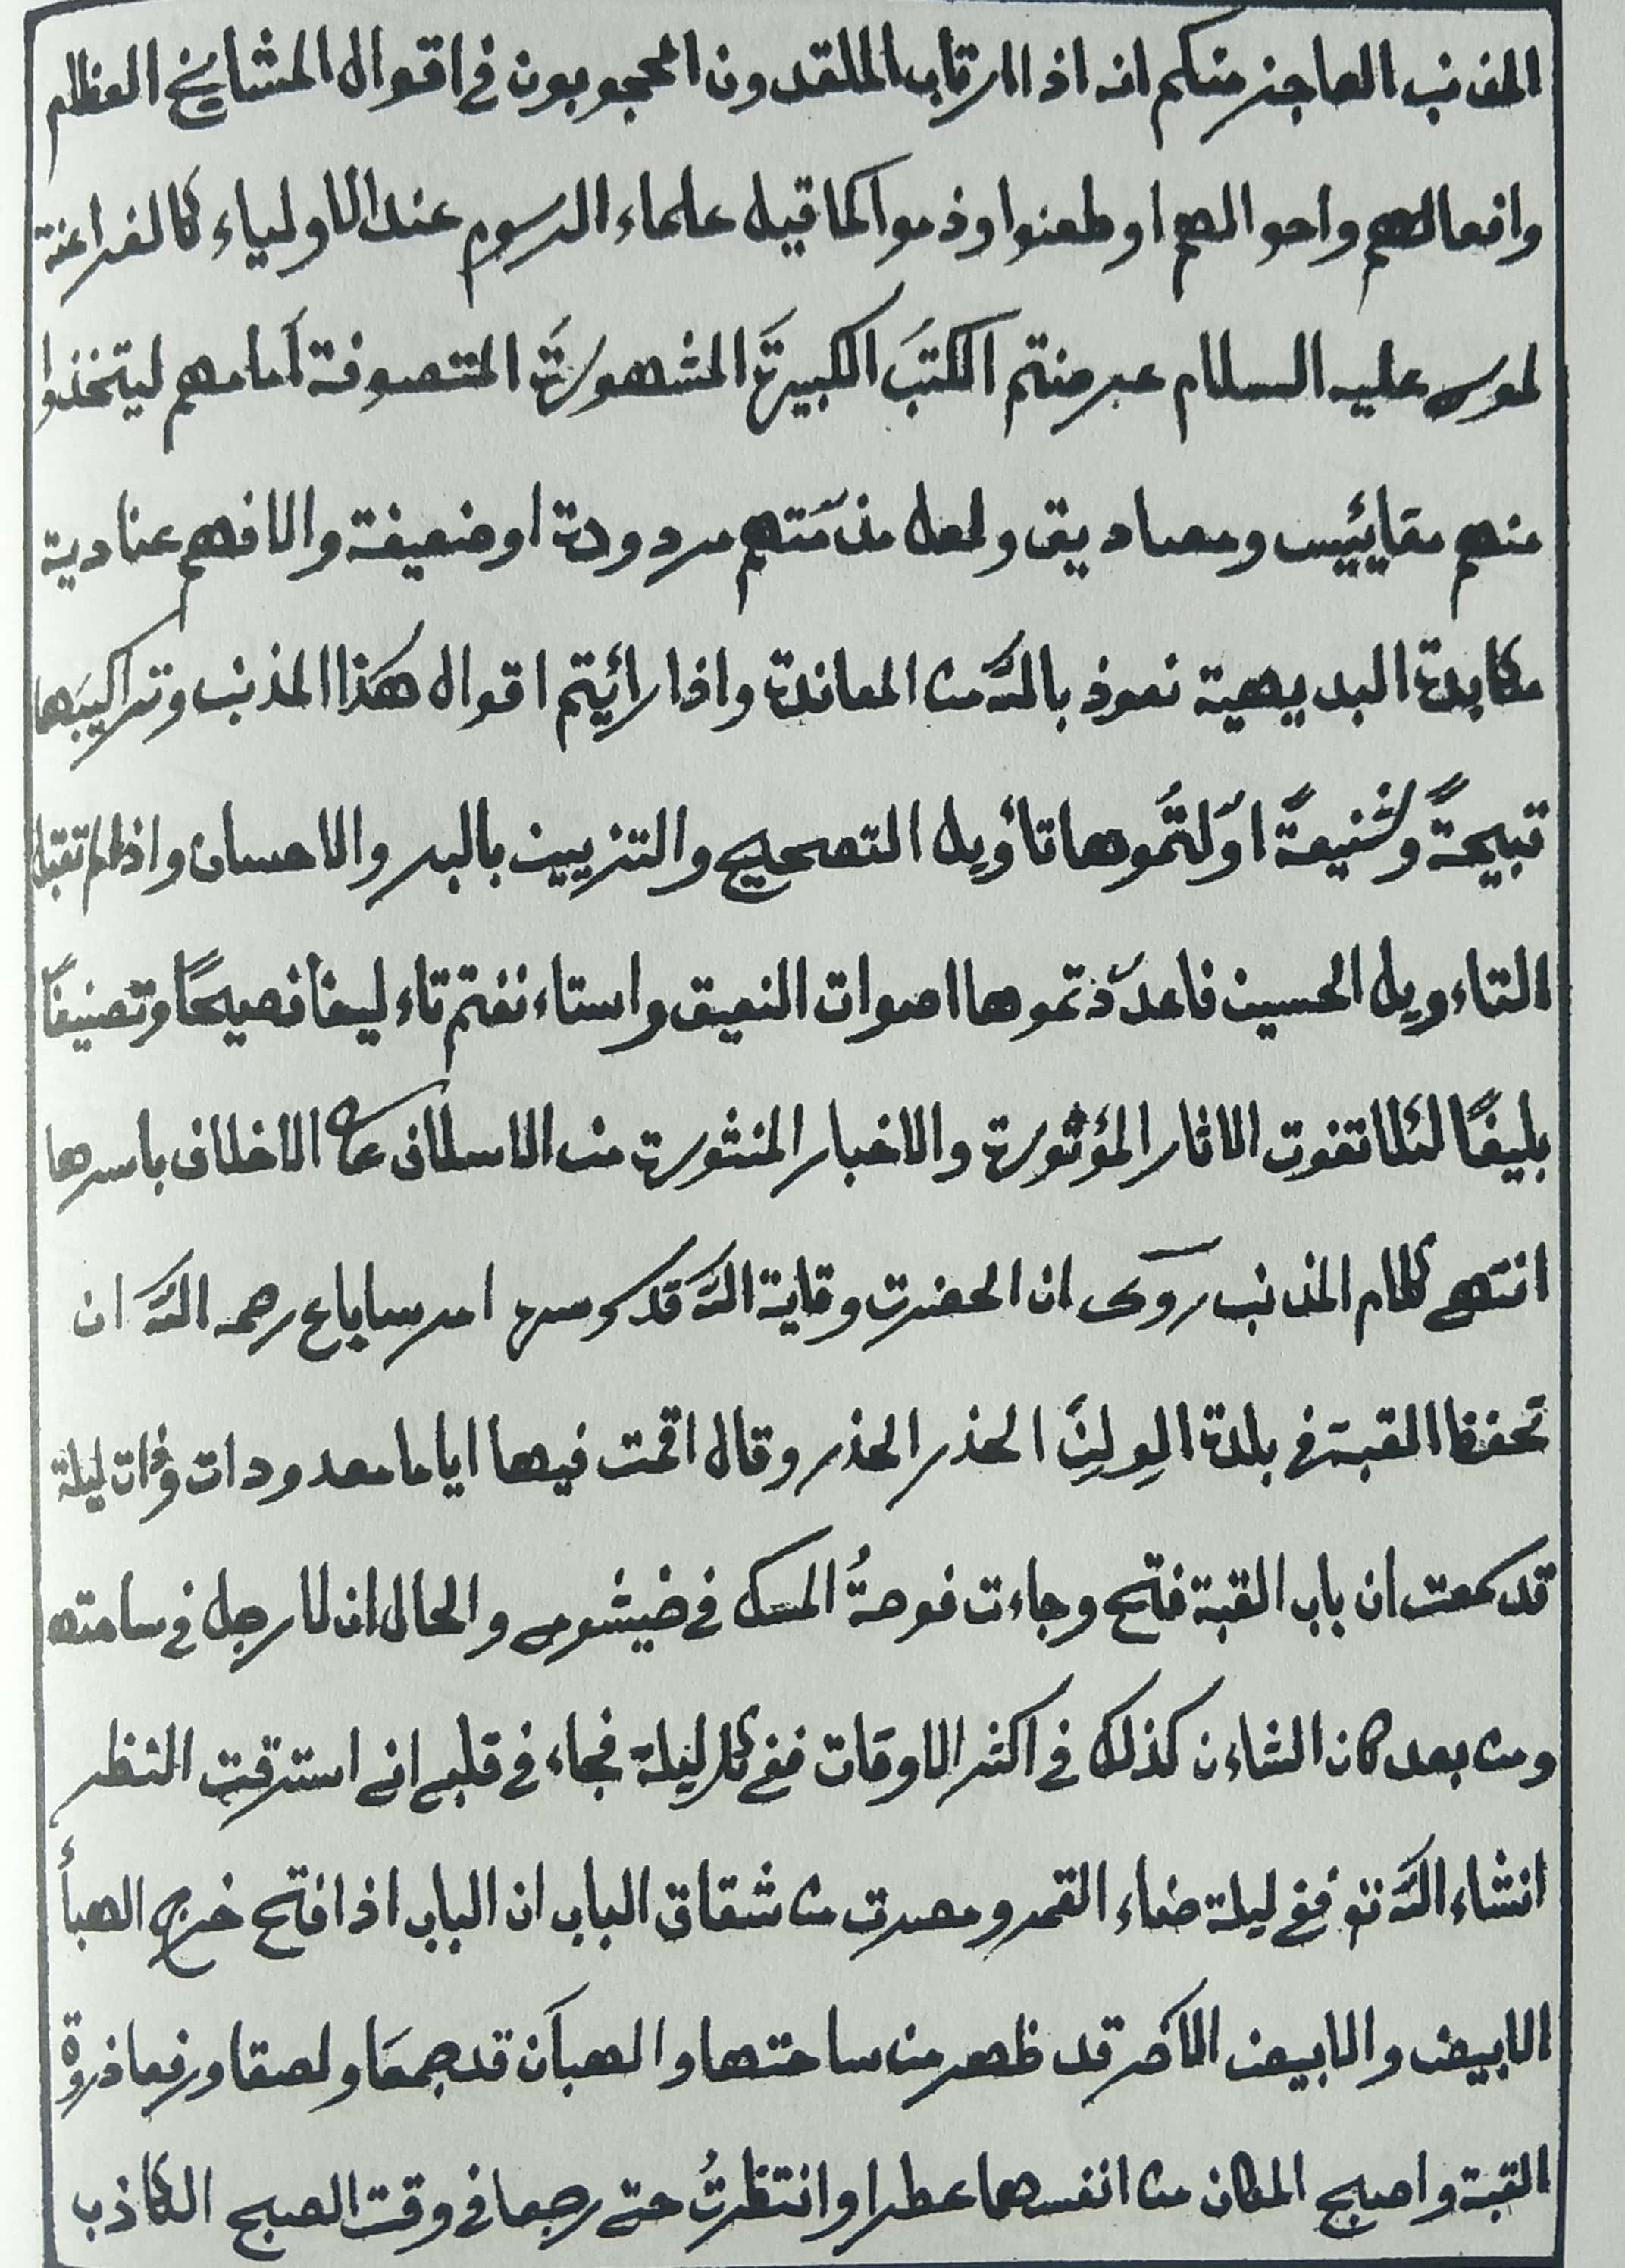 المذنب العاجز منكم انه اذا ارتاب الملقدون المحجوبون في اقوال المشايخ العظام
وافعالهم واحوالهم او طعنوا وذموا كما قيل علماء الرسوم عند الاولياء كالفراعنة
لموسى عليه السلام عرضتم الكتبَ الكبيرةَ المشهورةَ المتصوفة أمامهم ليتخذوا
منهم مقاييس ومصاديق ولعل مذمّتهم مردودة او ضعيفة والافهم عنادية
مكابرة البديهية نعوذ بالله من المعاندة واذا رائيتم اقوال هذا المذنب وتراكيبَها
قبيحةً وشنيعةً اوّلتُموها تأويل التصحيح والتزيين بالبر والاحسان واذا لم تقبل
التاءويل الحسين فاعدّدتموها اصوات النعيق واستاءنفتم تاءليفا فصيحًا وتصنيفًا
بليغًا لئلا تفوت الاثار المؤثورة والاخبار المنثورة من الاسلاف على الاخلاف باسرها
انتهى كلام المذنب روى ان الحضرت وقاية الله قدس سره امر ساباع رحمه الله ان
تحفظ القبة في بلدة الِولِىَ الحذر الحذر وقال اقمت فيها اياما معدودات وذات ليلة
قد سمعت ان باب القبة فتح وجاءت فوحةُ المسك في خيشومى والحال ان لا رجل في ساحته
ومن بعد كان الشاءن كذلك في اكثر الاوقات ففى كل ليلة فجاء في قلبى انى استرقت النظر
انشاء الله تع ففى ليلة ضاء القمر ومصرت من شقاق الباب ان الباب اذا فتح خرج الهبأ
الابيض والابيض الآخر قد ظهر من ساحتها والهبآن قد جمعَا ولصقا ورفعا ذروة
القبة واصبح المكان من انفسهما عطرا وانتظرتُ حتى رجعا في وقت الصبح الكاذب